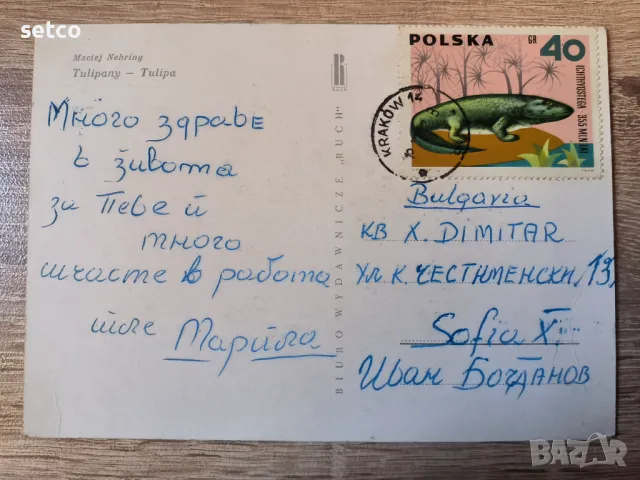 setco
Maciej Nehring
Tulipany — Tulipa
Много здраве
в живота
за Тебе и
много
щчасте в работа
шле Марийла
BIURO WYDAWNICZE „RUCH"
RUCH
POLSKA GR 40
ICHTHYOSTEGA 355 MLN LAT
KRAKÓW 12
Bulgaria
КВ Х. DIMITAR
Ул К. ЧЕСТИМЕНСКИ, 13,
Sofia X.
Иван БОГДАНОВ
BAZAR